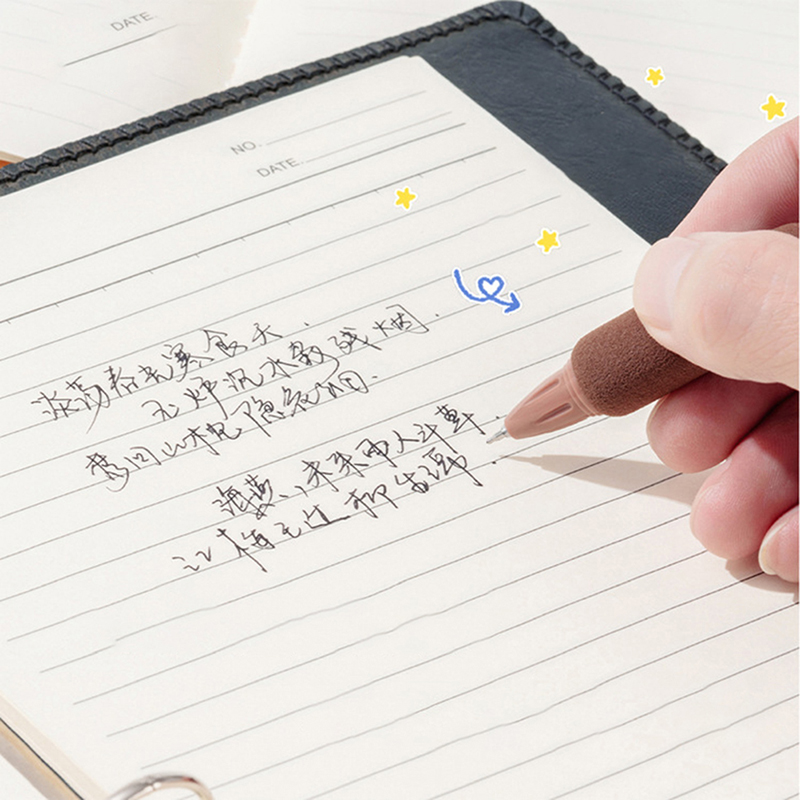 DATE
NO.
DATE.
淡荡春光寒食天.
玉炉沉水袅残烟.
梦回山枕隐花钿.
海燕未来人斗草.
江梅已过柳生绵.